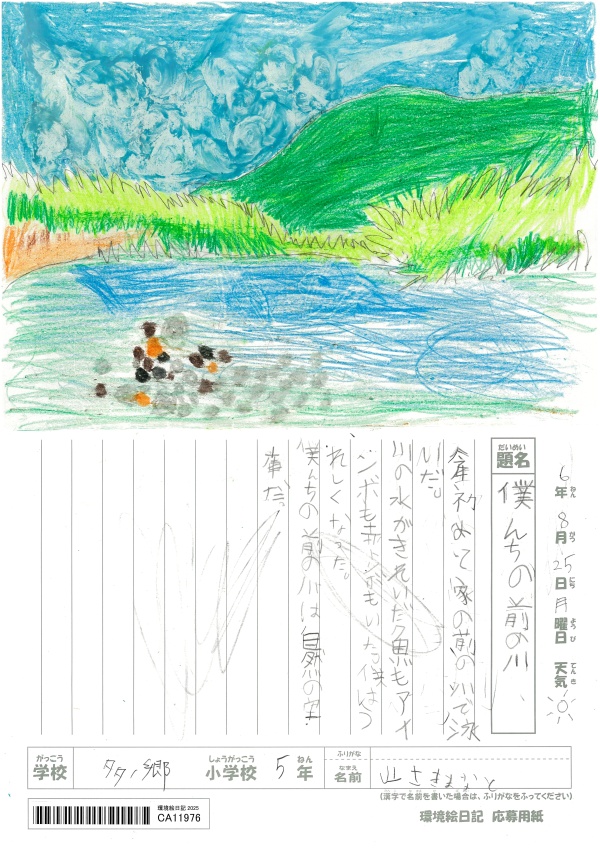 6年ねん 8月がつ 25日にち 月曜日ようび 天気てんき
だいめい
題名
僕んちの前の川
今年初めて家の前の川で泳
いだ。
川の水がきれいだ魚もアメ
ンボも赤トンボもいた。僕はう
れしくなった。
僕んちの前の川は自然の宝
庫だ。
がっこう
学校
郷
しょうがっこう
小学校
5
ねん
年
ふりがな
なまえ
名前
山さきまなと
(漢字で名前を書いた場合は、ふりがなをふってください)
環境絵日記2025
CA11976
環境絵日記 応募用紙